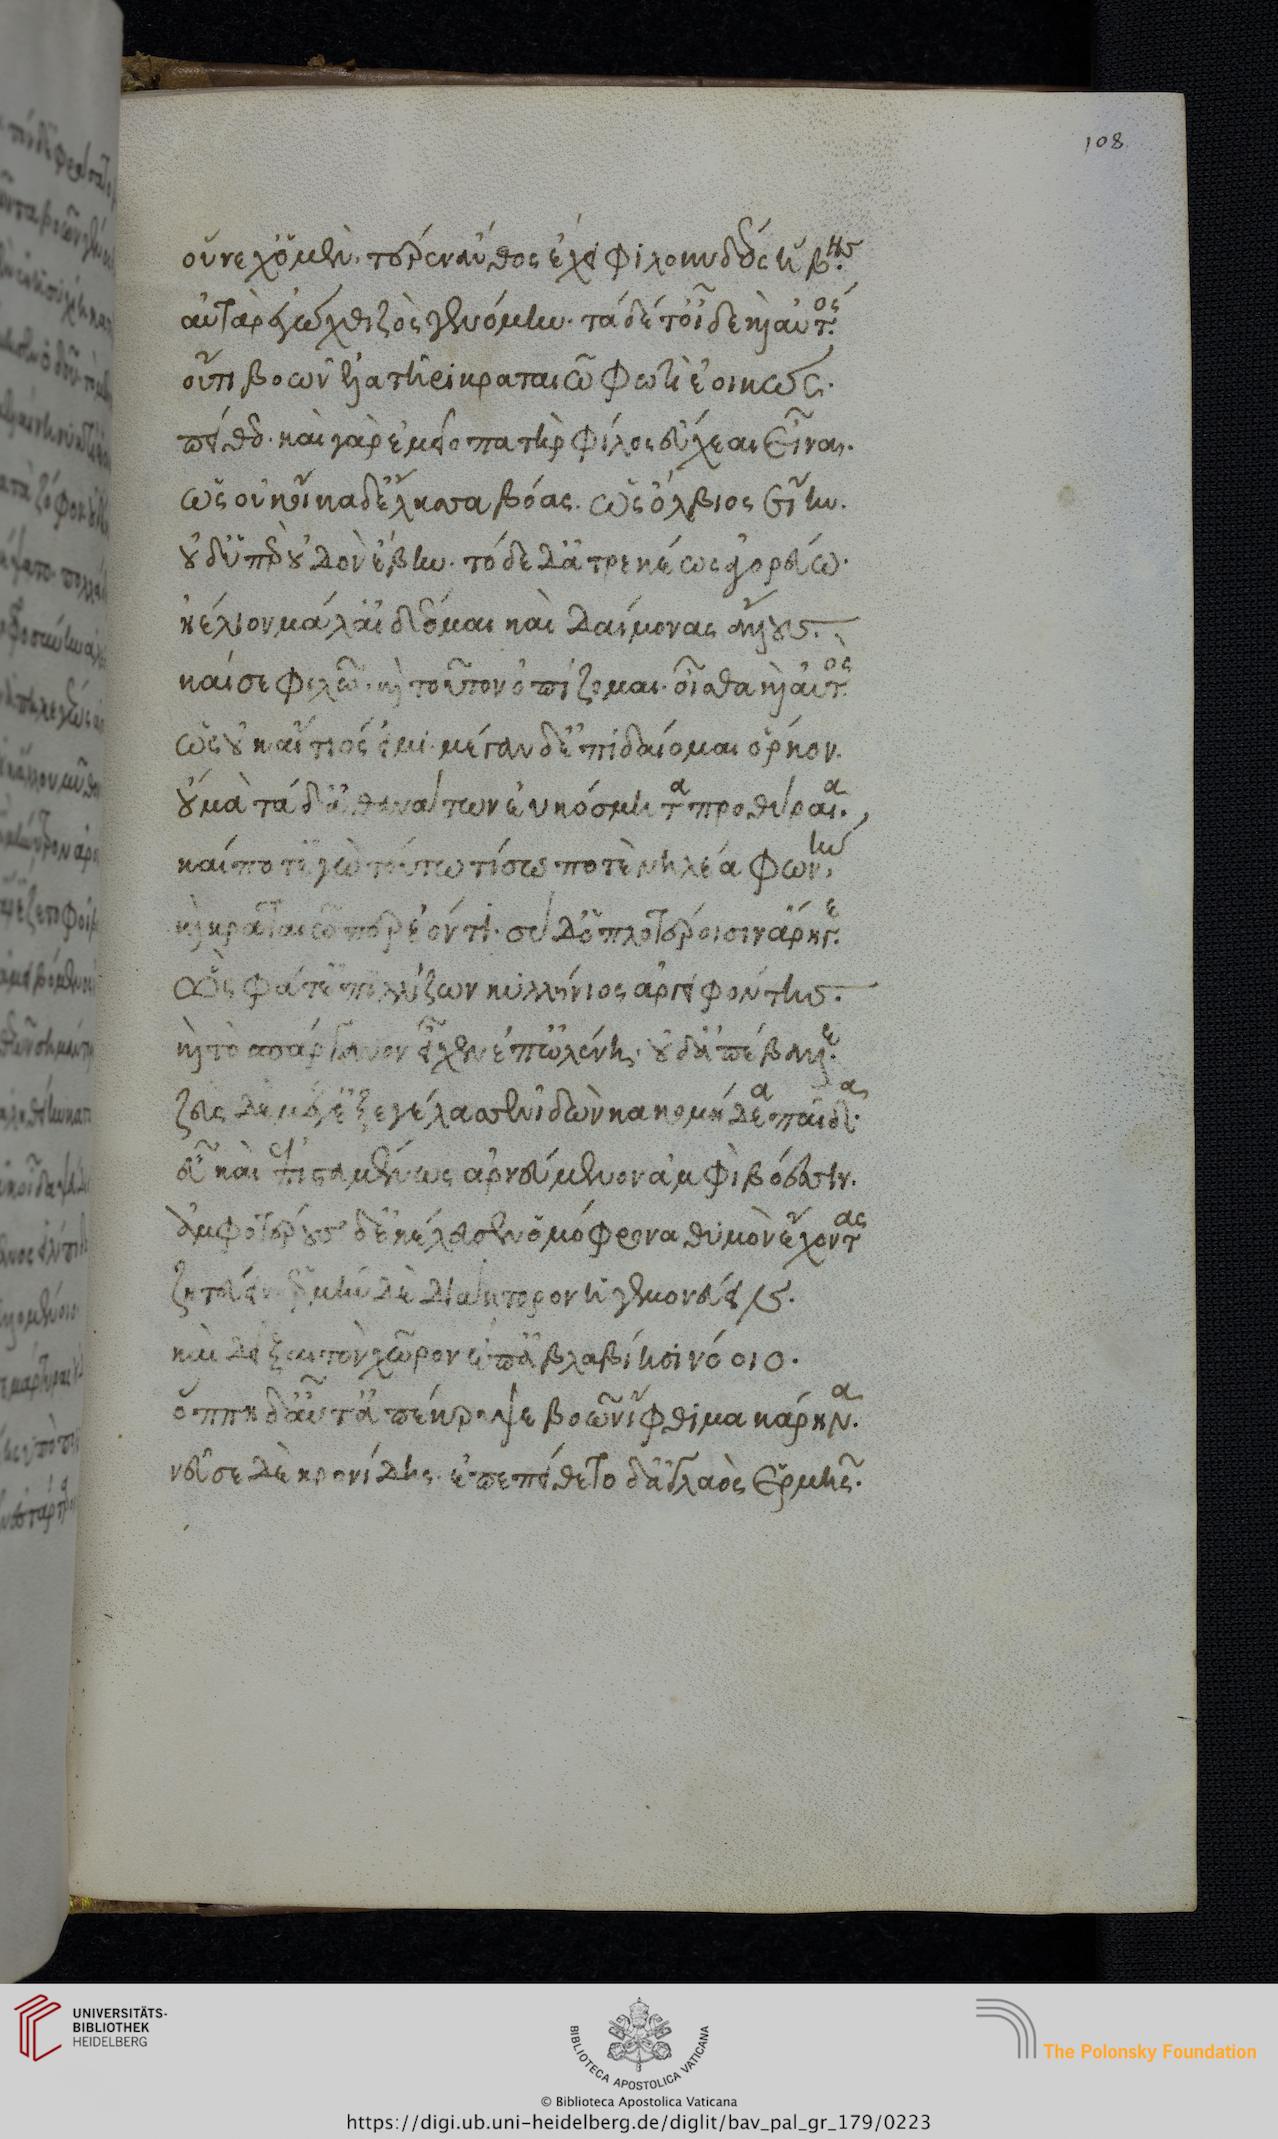 108
οὕνεχ' ὁ μὲν τέρεν ἄνθος ἔχει φιλοκυδέος ἥβης.
αὐτὰρ ἐγὼ χθιζὸς γενόμην. τὰ δέ τ' οἶδε καὶ αὐτός
οὔτι βοῶν ἐλατῆρι κραταιῷ φωτὶ ἐοικώς.
πείθεο. καὶ γὰρ ἐμεῖο πατὴρ φίλος εὔχεαι εἶναι.
ὡς οὐκ οἴκαδ' ἔλασσα βόας. ὣς ὄλβιος εἴην.
οὐδ' ὑπὲρ οὐδὸν ἔβην. τόδε δ' ἀτρεκέως ἀγορεύω.
ἠέλιον μάλ' αἰδέομαι καὶ δαίμονας ἄλλους.
καί σε φιλῶ. καὶ τοῦτον ὀπίζομαι. οἶσθα καὶ αὐτὸς
ὡς οὐκ αἴτιός εἰμι. μέγαν δ' ἐπιδαίομαι ὅρκον.
οὐ μὰ τάδ' ἀθανάτων εὐκόσμητα προθύραια.
καί ποτ' ἐγὼ τούτῳ τίσω ποτὲ νηλέα φωνήν
καὶ κρατερῷ περ ἐόντι. σὺ δ' ὁπλοτέροισιν ἄρηγε.
Ὣς φάτ' ἐπιλλίζων κυλλήνιος ἀργειφόντης.
καὶ τὸ σπάργανον εἶχεν ἐπ' ὠλένῃ. οὐδ' ἀπέβαλλε.
ζεὺς δὲ μέγ' ἐξεγέλασσεν ἰδὼν κακομηδέα παῖδα
εὖ καὶ ἐπισταμένως ἀρνεύμενον ἀμφὶ βόεσσιν.
ἀμφοτέρους δ' ἐκέλευσεν ὁμόφρονα θυμὸν ἔχοντας
ζητεύειν. ἑρμῆν δὲ διάκτορον ἡγεμονεύειν.
καὶ δεῖξαι τὸν χῶρον ἐπ' ἀβλαβίῃσι νόοιο.
ὅππη δ' αὖτ' ἀπέκρυψε βοῶν ἴφθιμα κάρηνα.
νεῦσε δὲ κρονίδης. ἐπεπείθετο δ' ἀγλαὸς Ἑρμῆς.
UNIVERSITÄTS-
BIBLIOTHEK
HEIDELBERG
BIBLIOTECA APOSTOLICA VATICANA
© Biblioteca Apostolica Vaticana
The Polonsky Foundation
https://digi.ub.uni-heidelberg.de/diglit/bav_pal_gr_179/0223